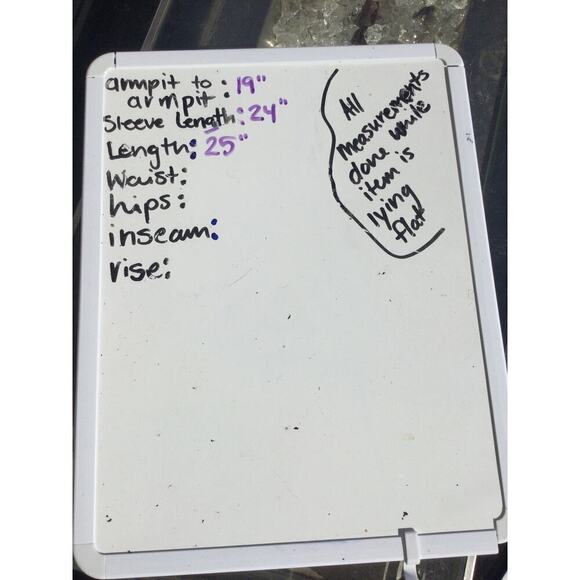 armpit to : 19"
armpit:
Sleeve Length: 24"
Length: 25"
Waist:
hips:
inseam:
rise:
All
measurements
done while
item is
lying
flat